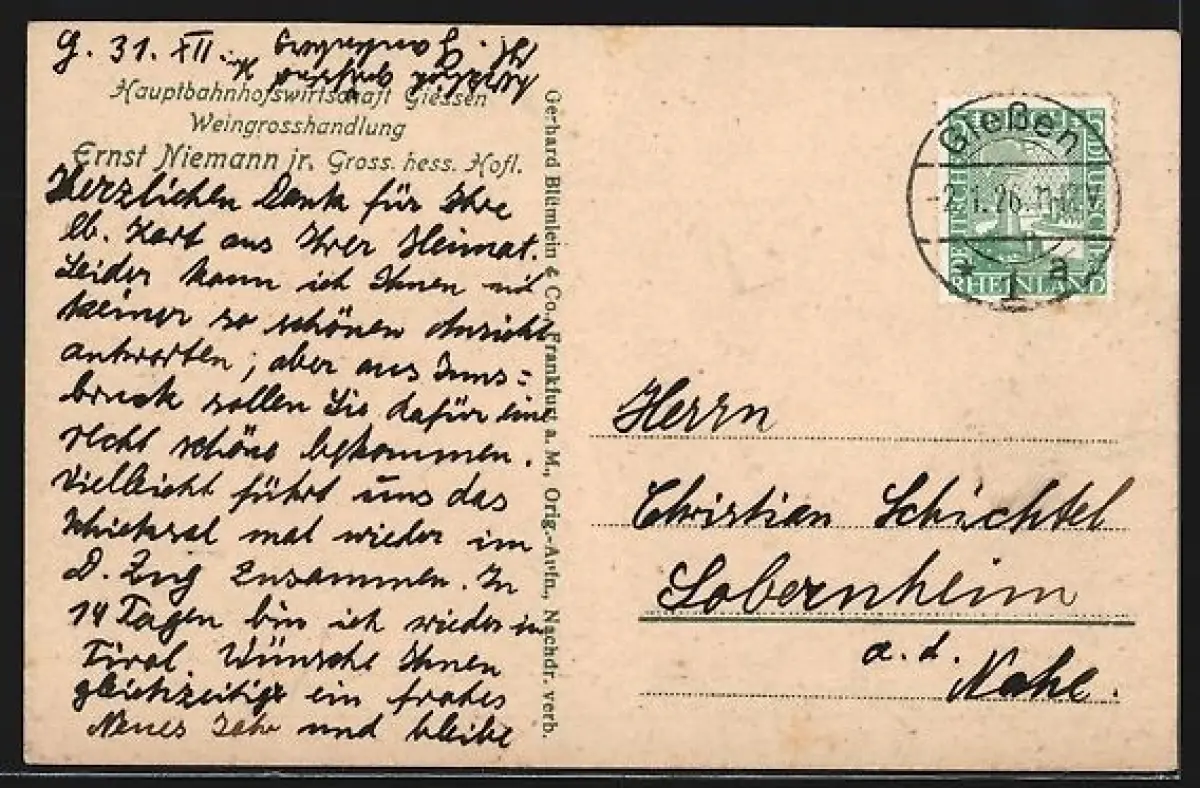 G. 31. XII.
Hauptbahnhofswirtschaft Giessen
Weingrosshandlung
Ernst Niemann jr. Gross. hess. Hofl.
Herzlichen Dank für Ihre
lb. Kart aus Ihrer Heimat.
Leider kann ich Ihnen mit
keiner so schönen Ansicht
antworten; aber aus Inns=
bruck sollen Sie dafür eine
recht schöne bekommen.
Vielleicht führt uns das
Schicksal mal wieder im
D. Zug zusammen. In
14 Tagen bin ich wieder in
Tirol. Wünsche Ihnen
gleichzeitig ein frohes
Neues Jahr und bleibe
Gerhard Blümlein & Co., Frankfurt a. M., Orig.-Arfn., Nachdr. verb.
Gießen
-2.1.26. 11-12 V
* 1 a
DEUTSCHES REICH
RHEINLAND
5
Herrn
Christian Schichtel
Sobernheim
a. d. Nahe.